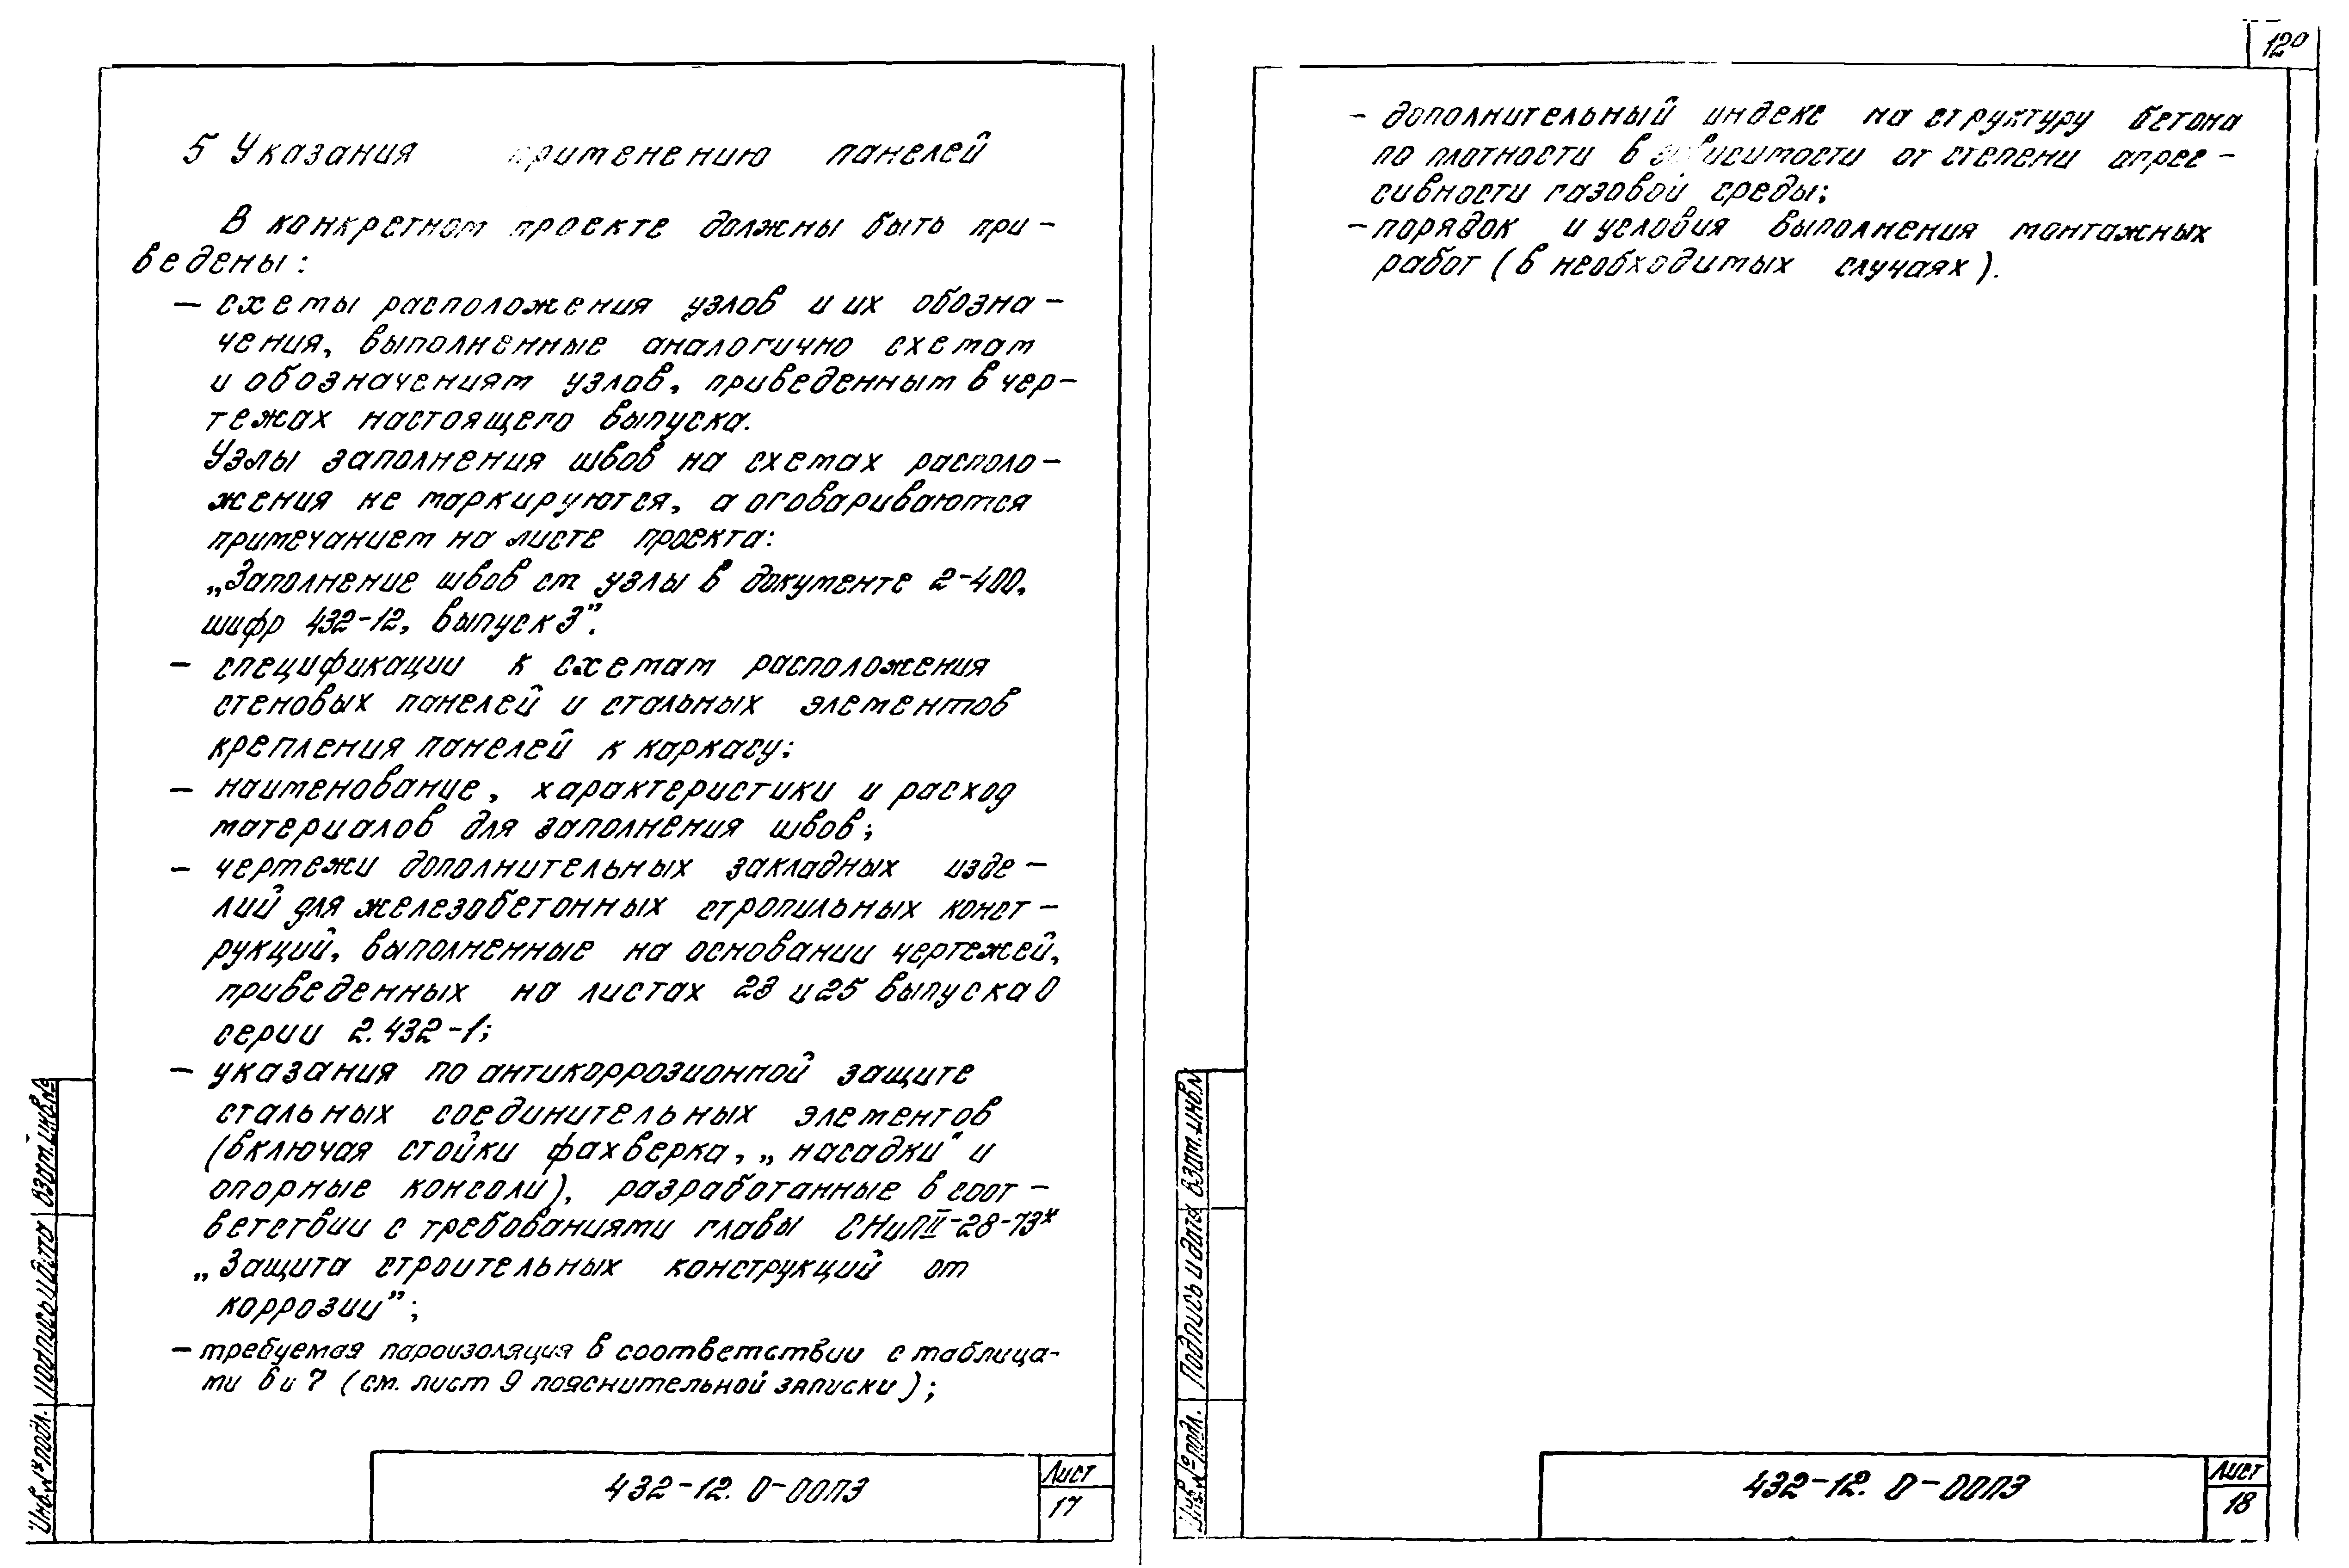 5 Указания применению панелей
В конкретном проекте должны быть при-
ведены:
— схемы расположения узлов и их обозна-
чения, выполненные аналогично схемам
и обозначениям узлов, приведенным в чер-
тежах настоящего выпуска.
Узлы заполнения швов на схемах располо-
жения не маркируются, а оговариваются
примечанием на листе проекта:
„Заполнение швов см. узлы в документе 2-400,
шифр 432-12, выпуск 3”.
— спецификации к схемам расположения
стеновых панелей и стальных элементов
крепления панелей к каркасу;
— наименование, характеристики и расход
материалов для заполнения швов;
— чертежи дополнительных закладных изде-
лий для железобетонных стропильных конст-
рукций, выполненные на основании чертежей,
приведенных на листах 23 и 25 выпуска 0
серии 2.432-1;
— указания по антикоррозионной защите
стальных соединительных элементов
(включая стойки фахверка, „насадки“ и
опорные консоли), разработанные в соот-
ветствии с требованиями главы СНиП II-28-73*
„Защита строительных конструкций от
коррозии”;
— требуемая пароизоляция в соответствии с таблица-
ми 6 и 7 (см. лист 9 пояснительной записки);
432-12. 0-00ПЗ
Лист
17
Инв.№подл. Подпись и дата Взам.инв.№
120
- дополнительный индекс на структуру бетона
по плотности в зависимости от степени агрес-
сивности газовой среды;
- порядок и условия выполнения монтажных
работ (в необходимых случаях).
432-12. 0-00ПЗ
Лист
18
Инв.№подл. Подпись и дата Взам.инв.№